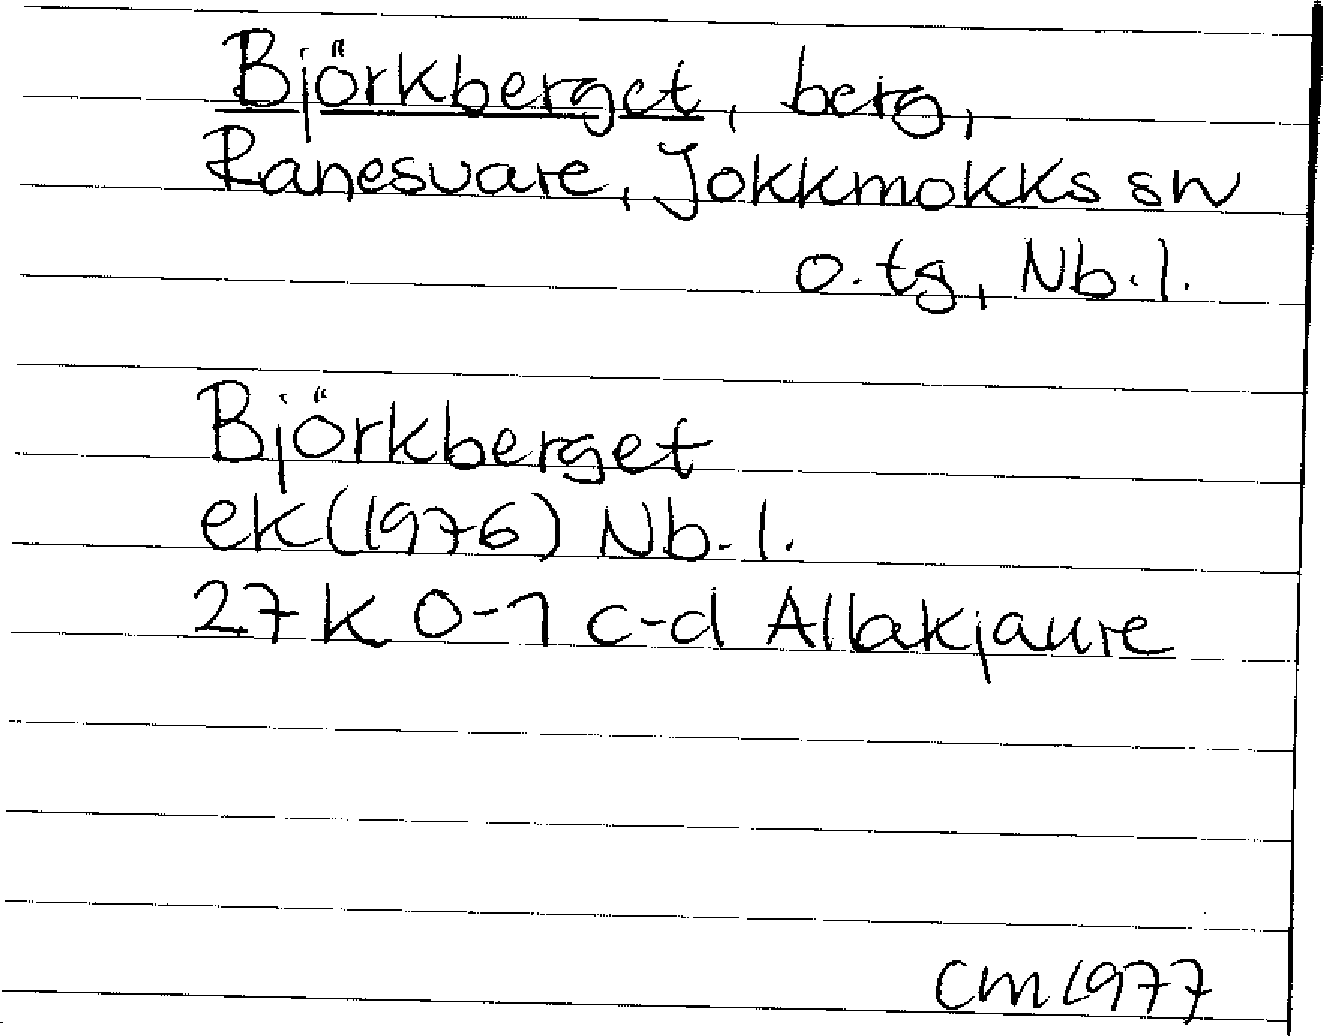 Björkberget, berg,
Ranesvare, Jokkmokks sn
o. tg, Nb. l.
Björkberget
ek (1976) Nb. l.
27 K 0-1 c-d Allakjaure
CM 1977